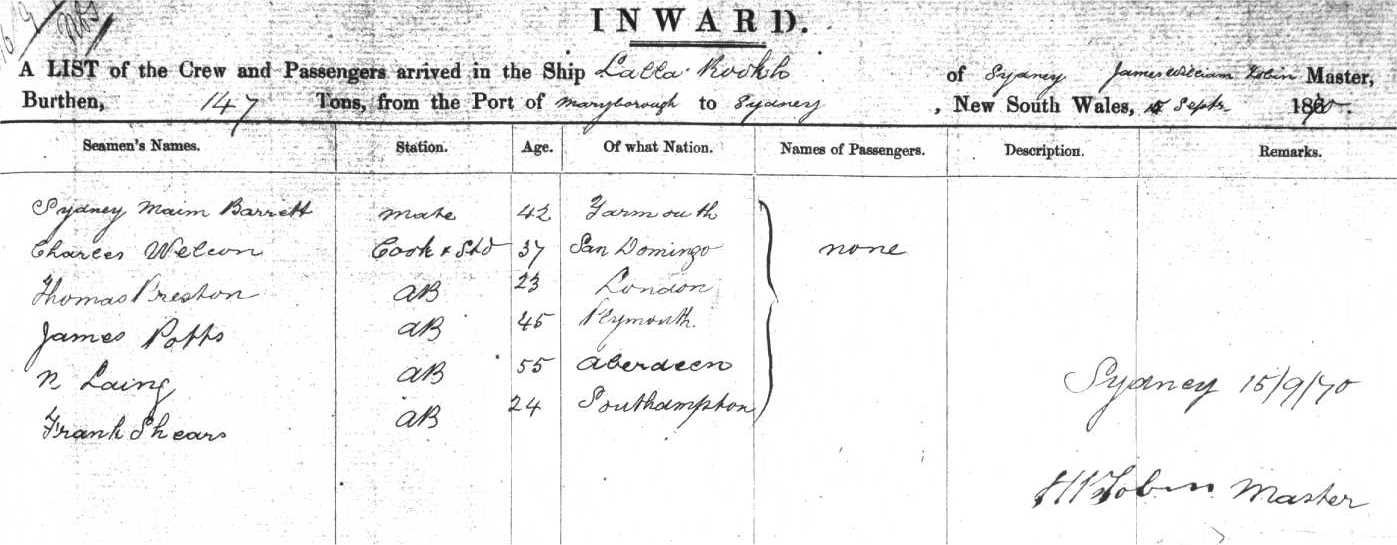 16/9
INWARD.
A LIST of the Crew and Passengers arrived in the Ship Lalla Rookh of Sydney James William Tobin Master,
Burthen, 147 Tons, from the Port of Maryborough to Sydney , New South Wales, 15 Septr 1870.
Seamen's Names. Station. Age. Of what Nation. Names of Passengers. Description. Remarks.
Sydney Maim Barrett mate 42 Yarmouth
Charles Welcon Cook & Std 37 San Domingo none
Thomas Preston AB 23 London
James Potts AB 45 Plymouth
N Laing AB 55 Aberdeen
Frank Shears AB 24 Southampton
Sydney 15/9/70
Tobin Master